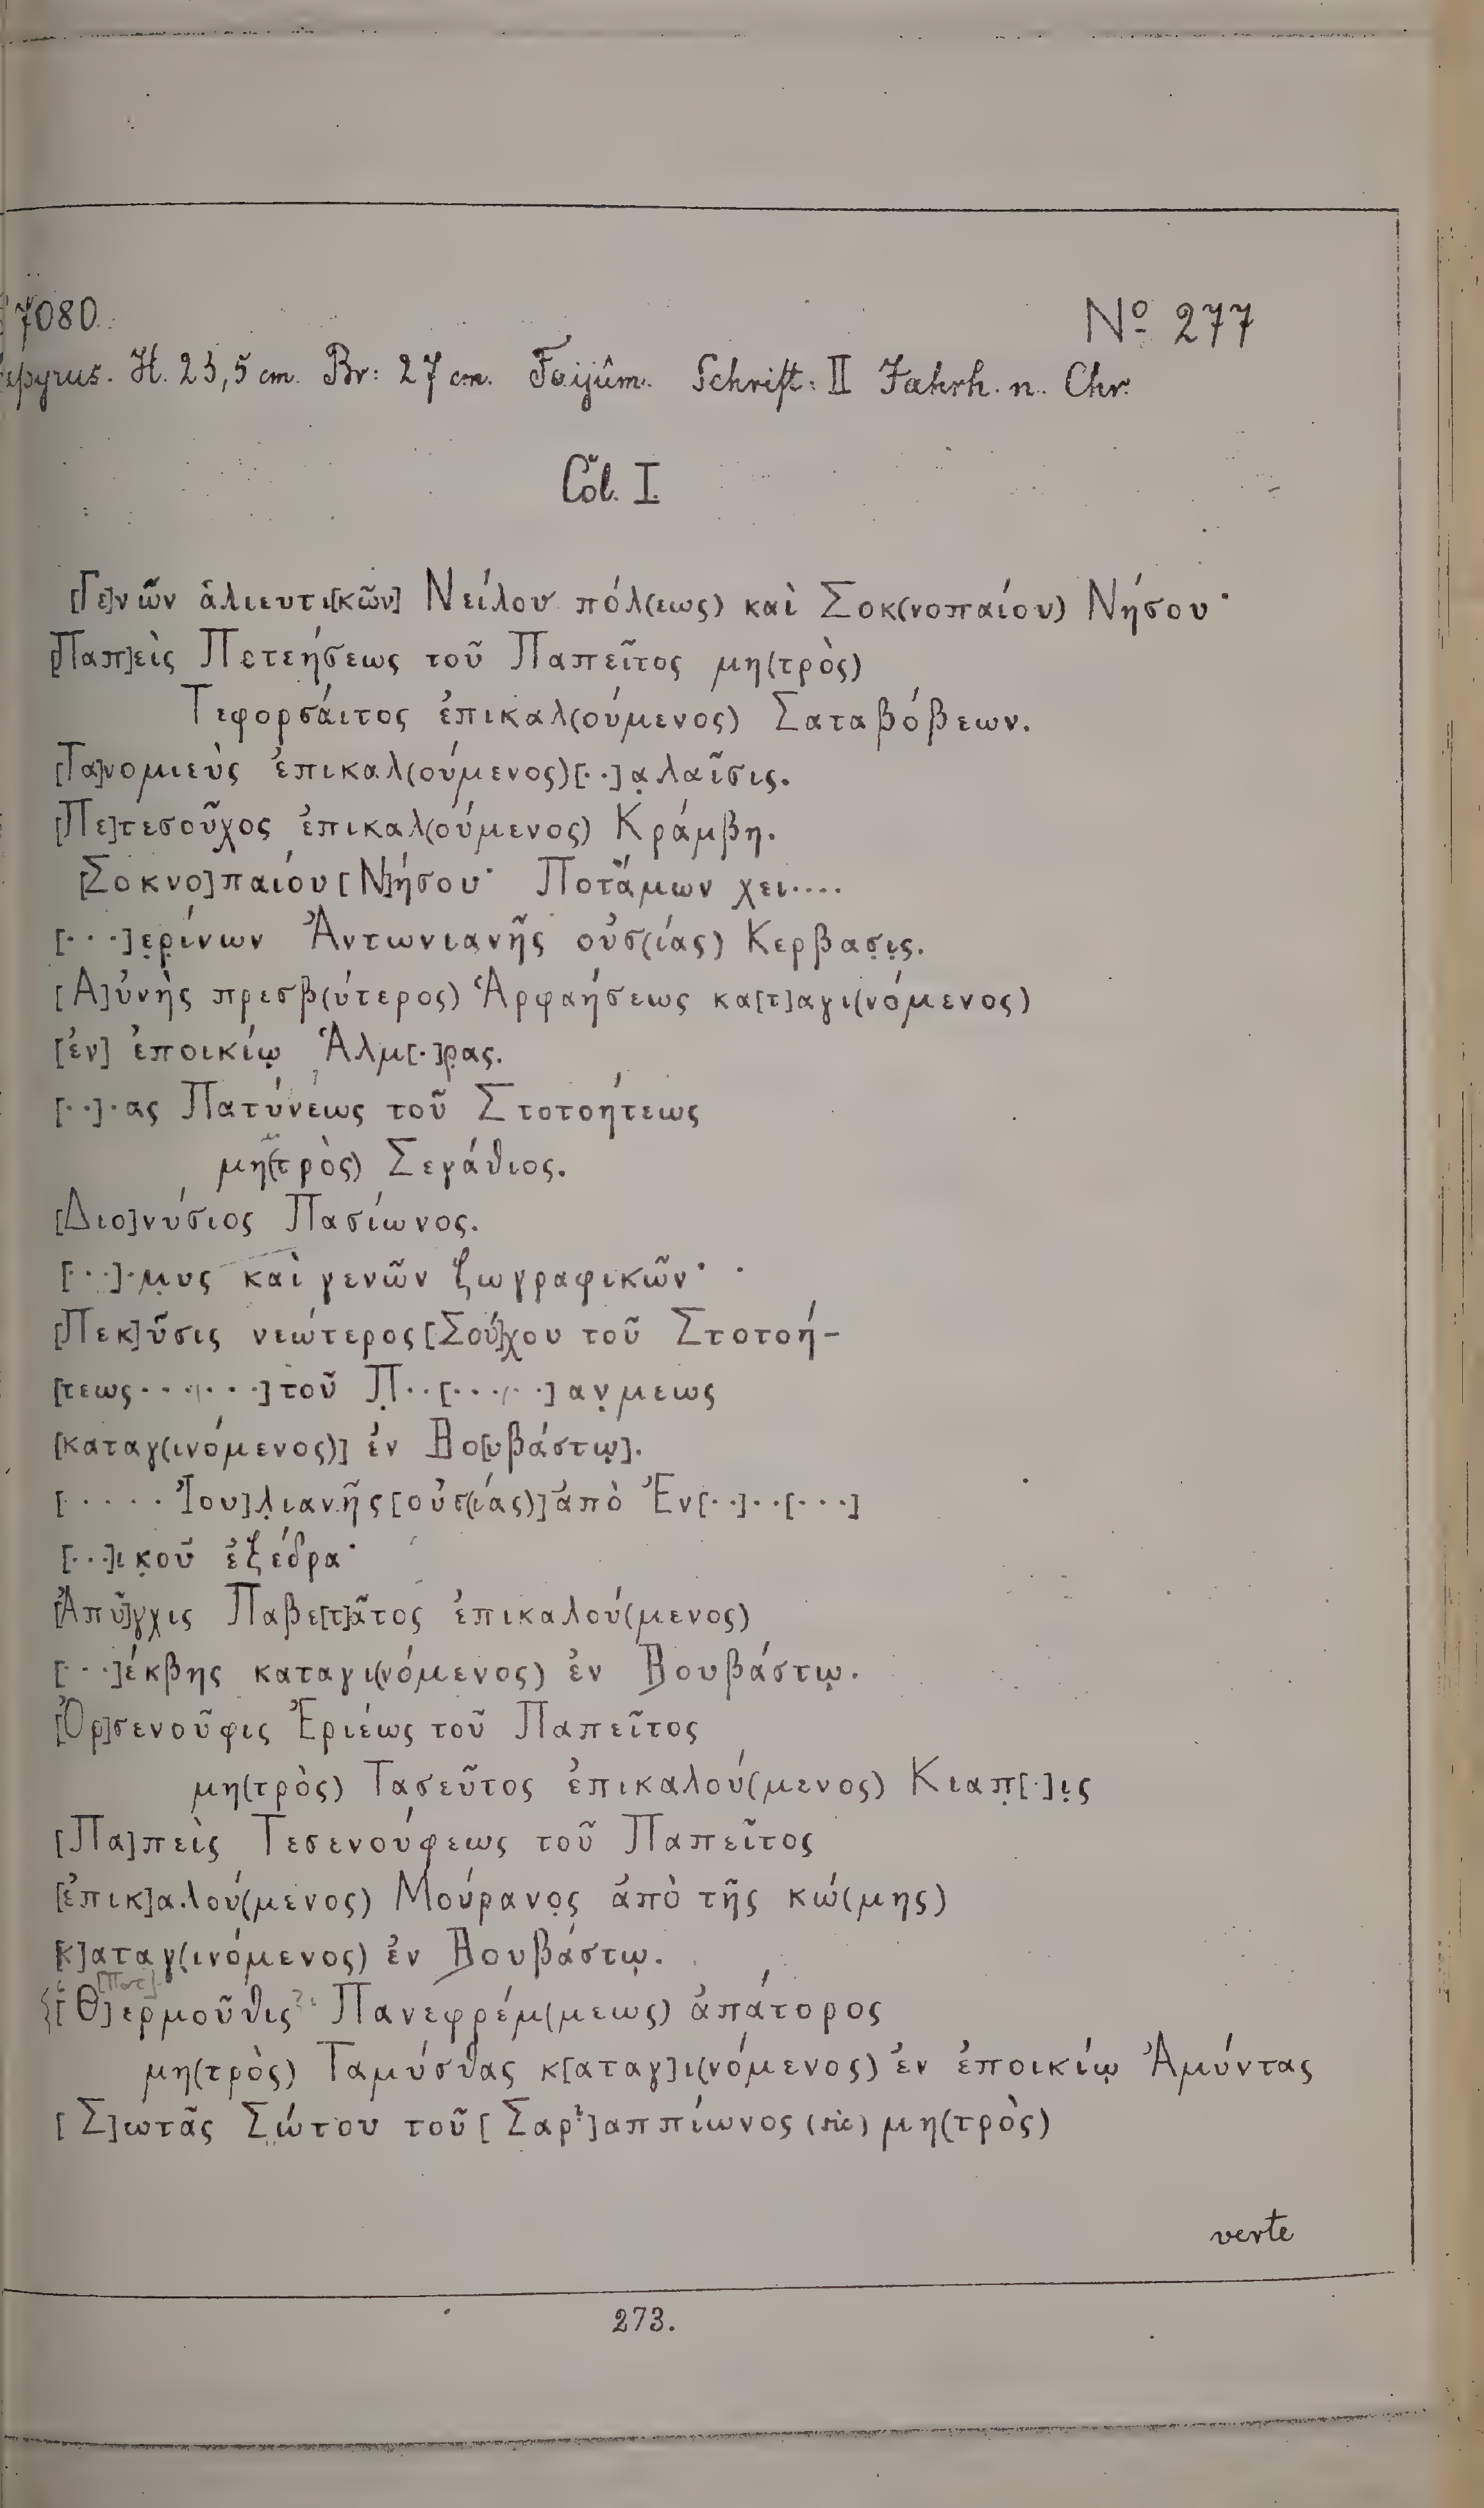 7080.
Nº 277
apyrus. H. 23,5 cm. Br: 27 cm. Faijûm. Schrift: II Jahrh. n. Chr.
Col. I.
[Γε]νῶν ἁλιευτι[κῶν] Νείλου πόλ(εως) καὶ Σοκ(νοπαίου) Νήσου·
[Παπ]εὶς Πετεήσεως τοῦ Παπεῖτος μη(τρὸς)
Τεφορσάιτος ἐπικαλ(ούμενος) Σαταβόβεων.
[Τα]νομιεὺς ἐπικαλ(ούμενος)[··]α̣λαῖσις.
[Πε]τεσοῦχος ἐπικαλ(ούμενος) Κράμβη.
[Σοκνο]παίου [Ν]ήσου· Ποτάμων χει....
[···]ε̣ρ̣ίνων Ἀντωνιανῆς οὐσ(ίας) Κερβασ̣ι̣ς.
[Α]ὐνὴς πρεσβ(ύτερος) Ἁρφαήσεως κα[τ]αγι(νόμενος)
[ἐν] ἐποικίῳ Ἁλμ[·]ρ̣ας.
[··]·ας Πατύνεως τοῦ Στοτοήτεως
μη(τρὸς) Σεγάθιος.
[Διο]νύσιος Πασίωνος.
[···]·μ̣υς καὶ γενῶν ζωγραφικῶν·
[Πεκ]ῦσις νεώτερος [Σού]χου τοῦ Στοτοή-
[τεως······] τοῦ Π̣··[·····]αν̣μεως
[καταγ(ινόμενος)] ἐν Βο[υβάστῳ].
[····· Ἰου]λ̣ιανῆς [οὐσ(ίας)] ἀπὸ Ἐν[··]··[···]
[···]ικ̣οῦ ἐξέδρα·
[Ἀπῦ]γχις Παβε[τ]ᾶτος ἐπικαλού(μενος)
[···]έκβης καταγι(νόμενος) ἐν Βουβάστῳ.
[Ὀρ]σενοῦφις Ἑριέως τοῦ Παπεῖτος
μη(τρὸς) Τασεῦτος ἐπικαλού(μενος) Κιαπ̣[·]ι̣ς
[Πα]πεὶς Τεσενούφεως τοῦ Παπεῖτος
[ἐπικ]αλού(μενος) Μούρανο̣ς ἀπὸ τῆς κώ(μης)
[κ]αταγ(ινόμενος) ἐν Βουβάστῳ.
[Θ]ερμοῦθις? Πανεφρέμ(μεως) ἀπάτορος
μη(τρὸς) Ταμύσθας κ[αταγ]ι(νόμενος) ἐν ἐποικίῳ Ἀμύντας
[Σ]ωτᾶς Σώτου τοῦ [Σαρ?]αππίωνος (sic) μη(τρὸς)
verte
273.